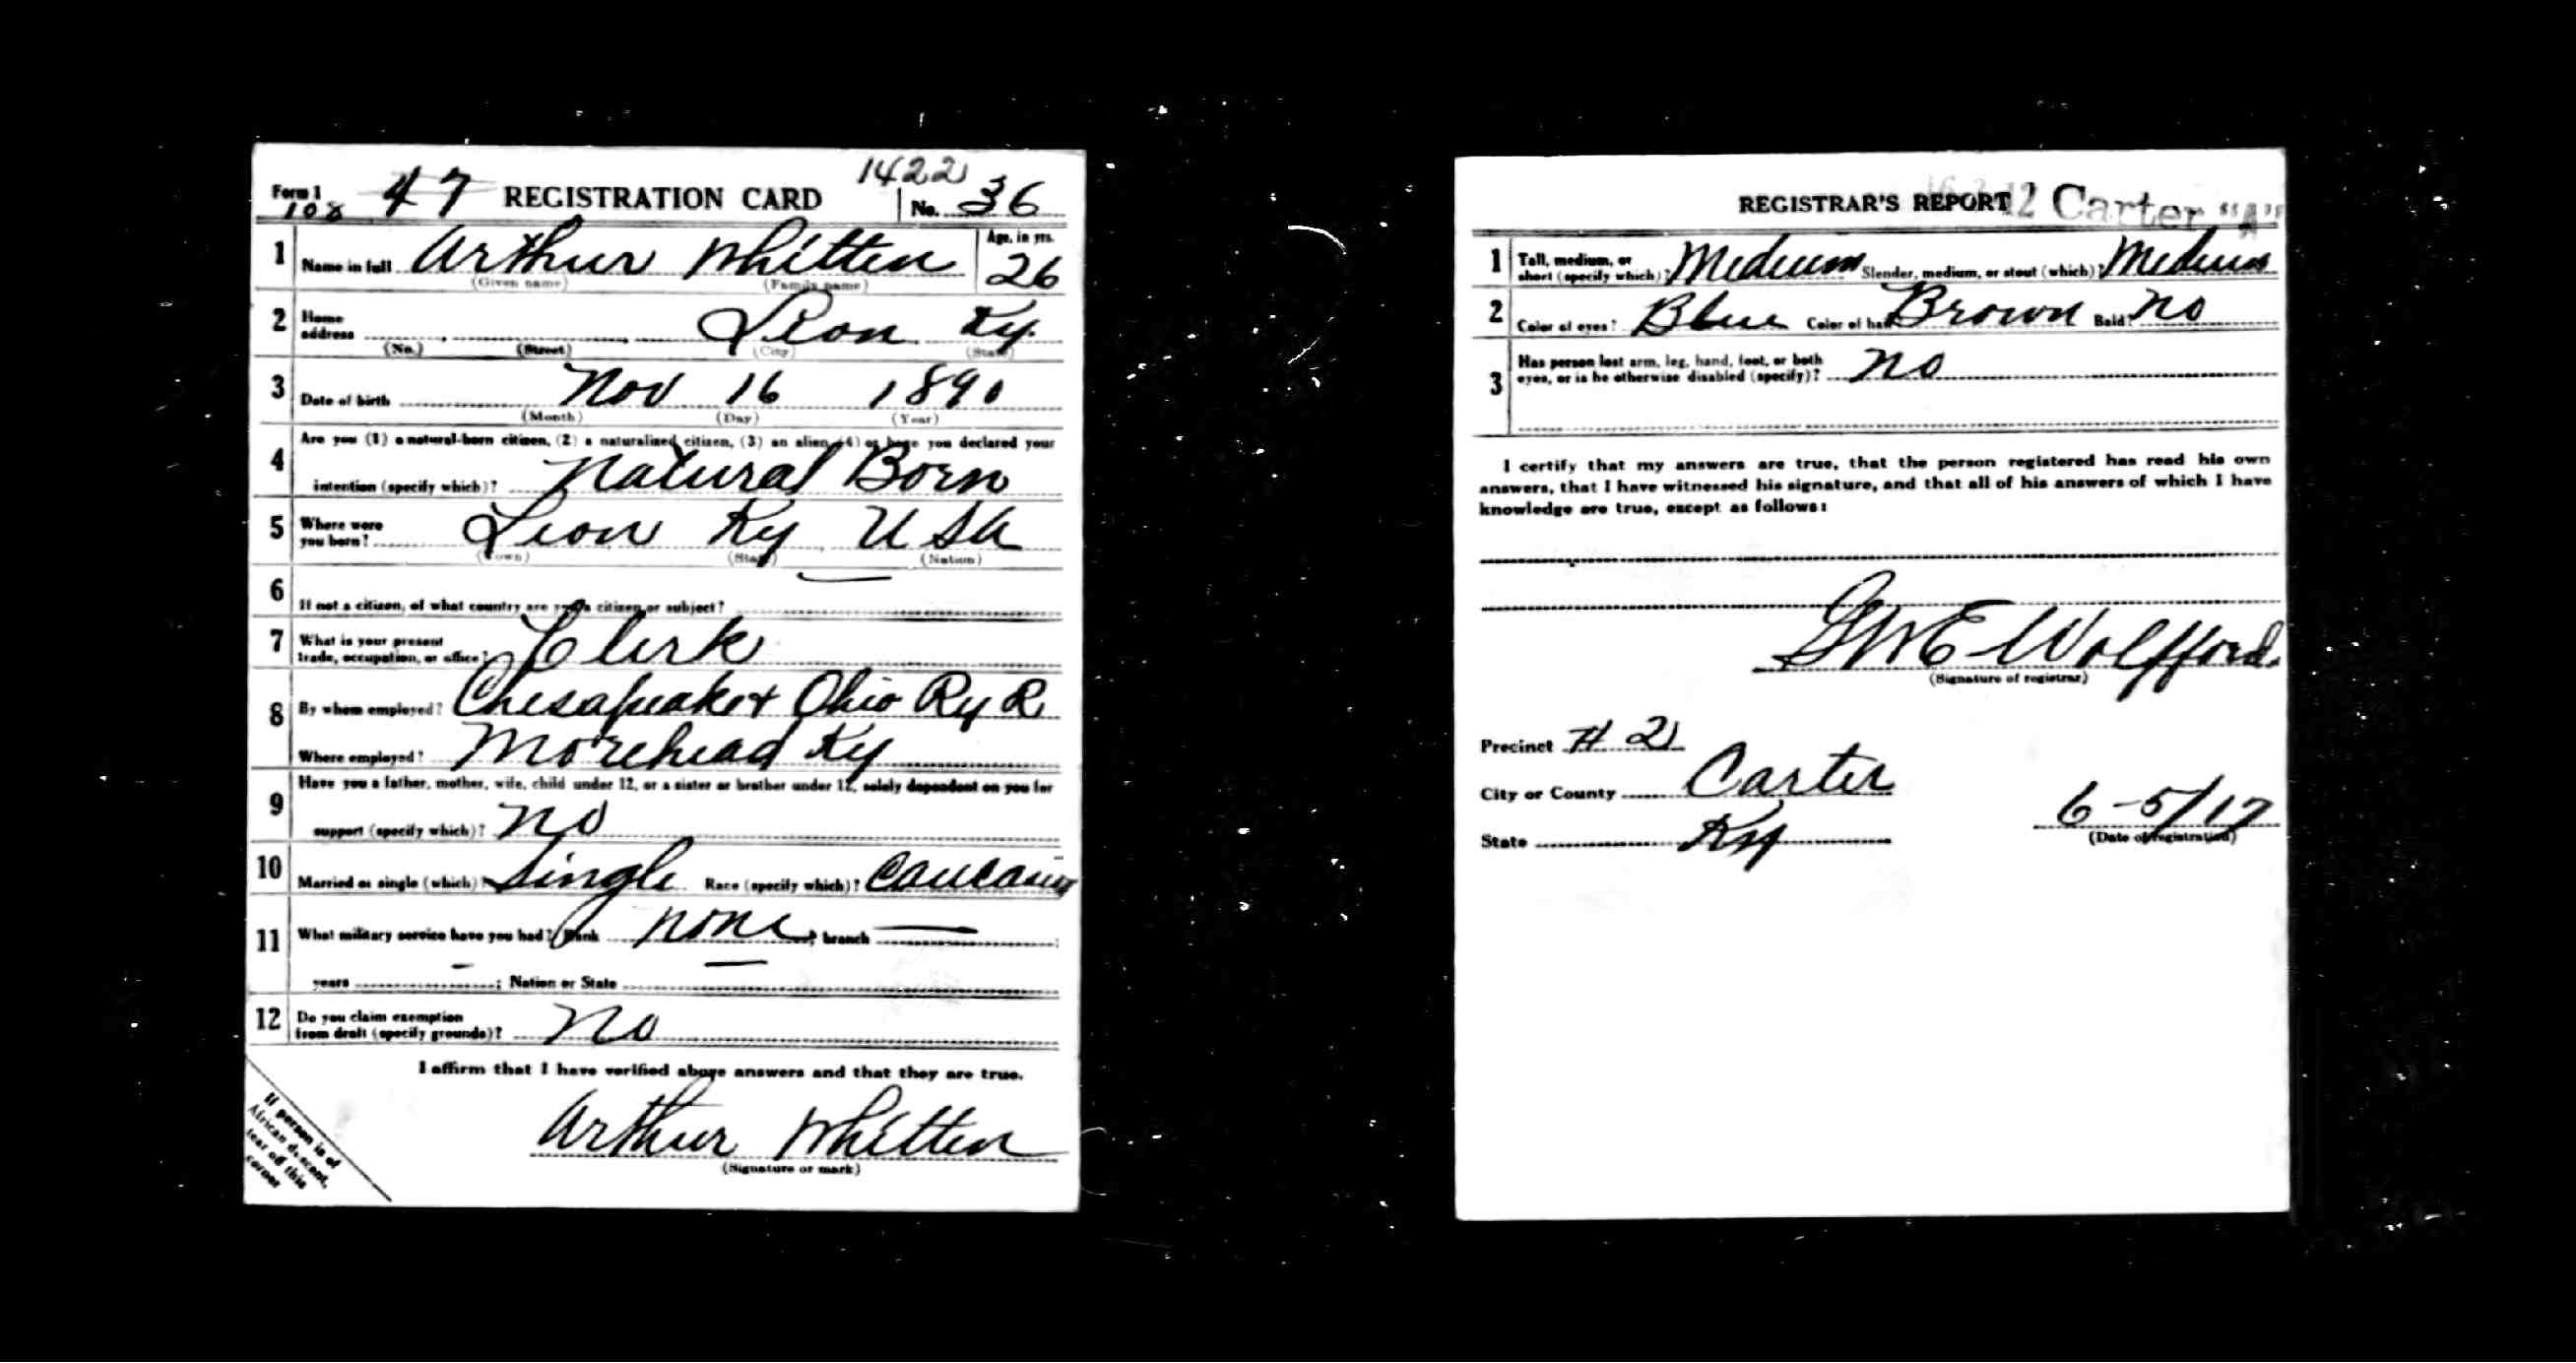 Form 1 47 REGISTRATION CARD 1422 No. 36
108
1 Name in full Arthur Whitten Age, in yrs. 26
(Given name) (Family name)
2 Home address Leon Ky.
(No.) (Street) (City) (State)
3 Date of birth Nov 16 1890
(Month) (Day) (Year)
4 Are you (1) a natural-born citizen, (2) a naturalized citizen, (3) an alien, (4) or have you declared your
intention (specify which)? Natural Born
5 Where were you born? Leon Ky USA
(Town) (State) (Nation)
6 If not a citizen, of what country are you a citizen or subject?
7 What is your present trade, occupation, or office? Clerk
8 By whom employed? Chesapeake & Ohio Ry R
Where employed? Morehead Ky
9 Have you a father, mother, wife, child under 12, or a sister or brother under 12, solely dependent on you for
support (specify which)? No
10 Married or single (which)? Single Race (specify which)? Caucasian
11 What military service have you had? Rank none; branch —;
years —; Nation or State —
12 Do you claim exemption from draft (specify grounds)? No
I affirm that I have verified above answers and that they are true.
Arthur Whitten
(Signature or mark)
If person is of
African descent,
tear off this
corner
REGISTRAR'S REPORT 12 Carter "A"
1 Tall, medium, or short (specify which)? Medium Slender, medium, or stout (which)? Medium
2 Color of eyes? Blue Color of hair Brown Bald? No
3 Has person lost arm, leg, hand, foot, or both
eyes, or is he otherwise disabled (specify)? No
I certify that my answers are true, that the person registered has read his own
answers, that I have witnessed his signature, and that all of his answers of which I have
knowledge are true, except as follows:
Wolfford
(Signature of registrar)
Precinct # 2
City or County Carter
State Ky
6-5/17
(Date of registration)